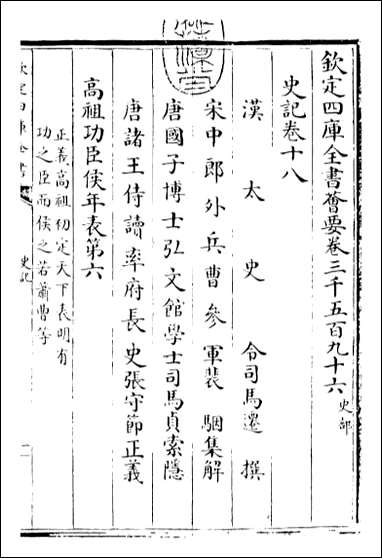 欽定四庫全書薈要卷三千五百九十六 史部
史記卷十八
漢太史令司馬遷撰
宋中郎外兵曹參軍裴駰集解
唐國子博士弘文館學士司馬貞索隱
唐諸王侍讀率府長史張守節正義
高祖功臣侯年表第六
正義高祖初定天下表明有
功之臣而侯之若蕭曹等
欽定四庫全書
史記